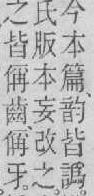 今本篇、韵皆譌、
氏版本妄改之、
之皆偁齒、偁牙、